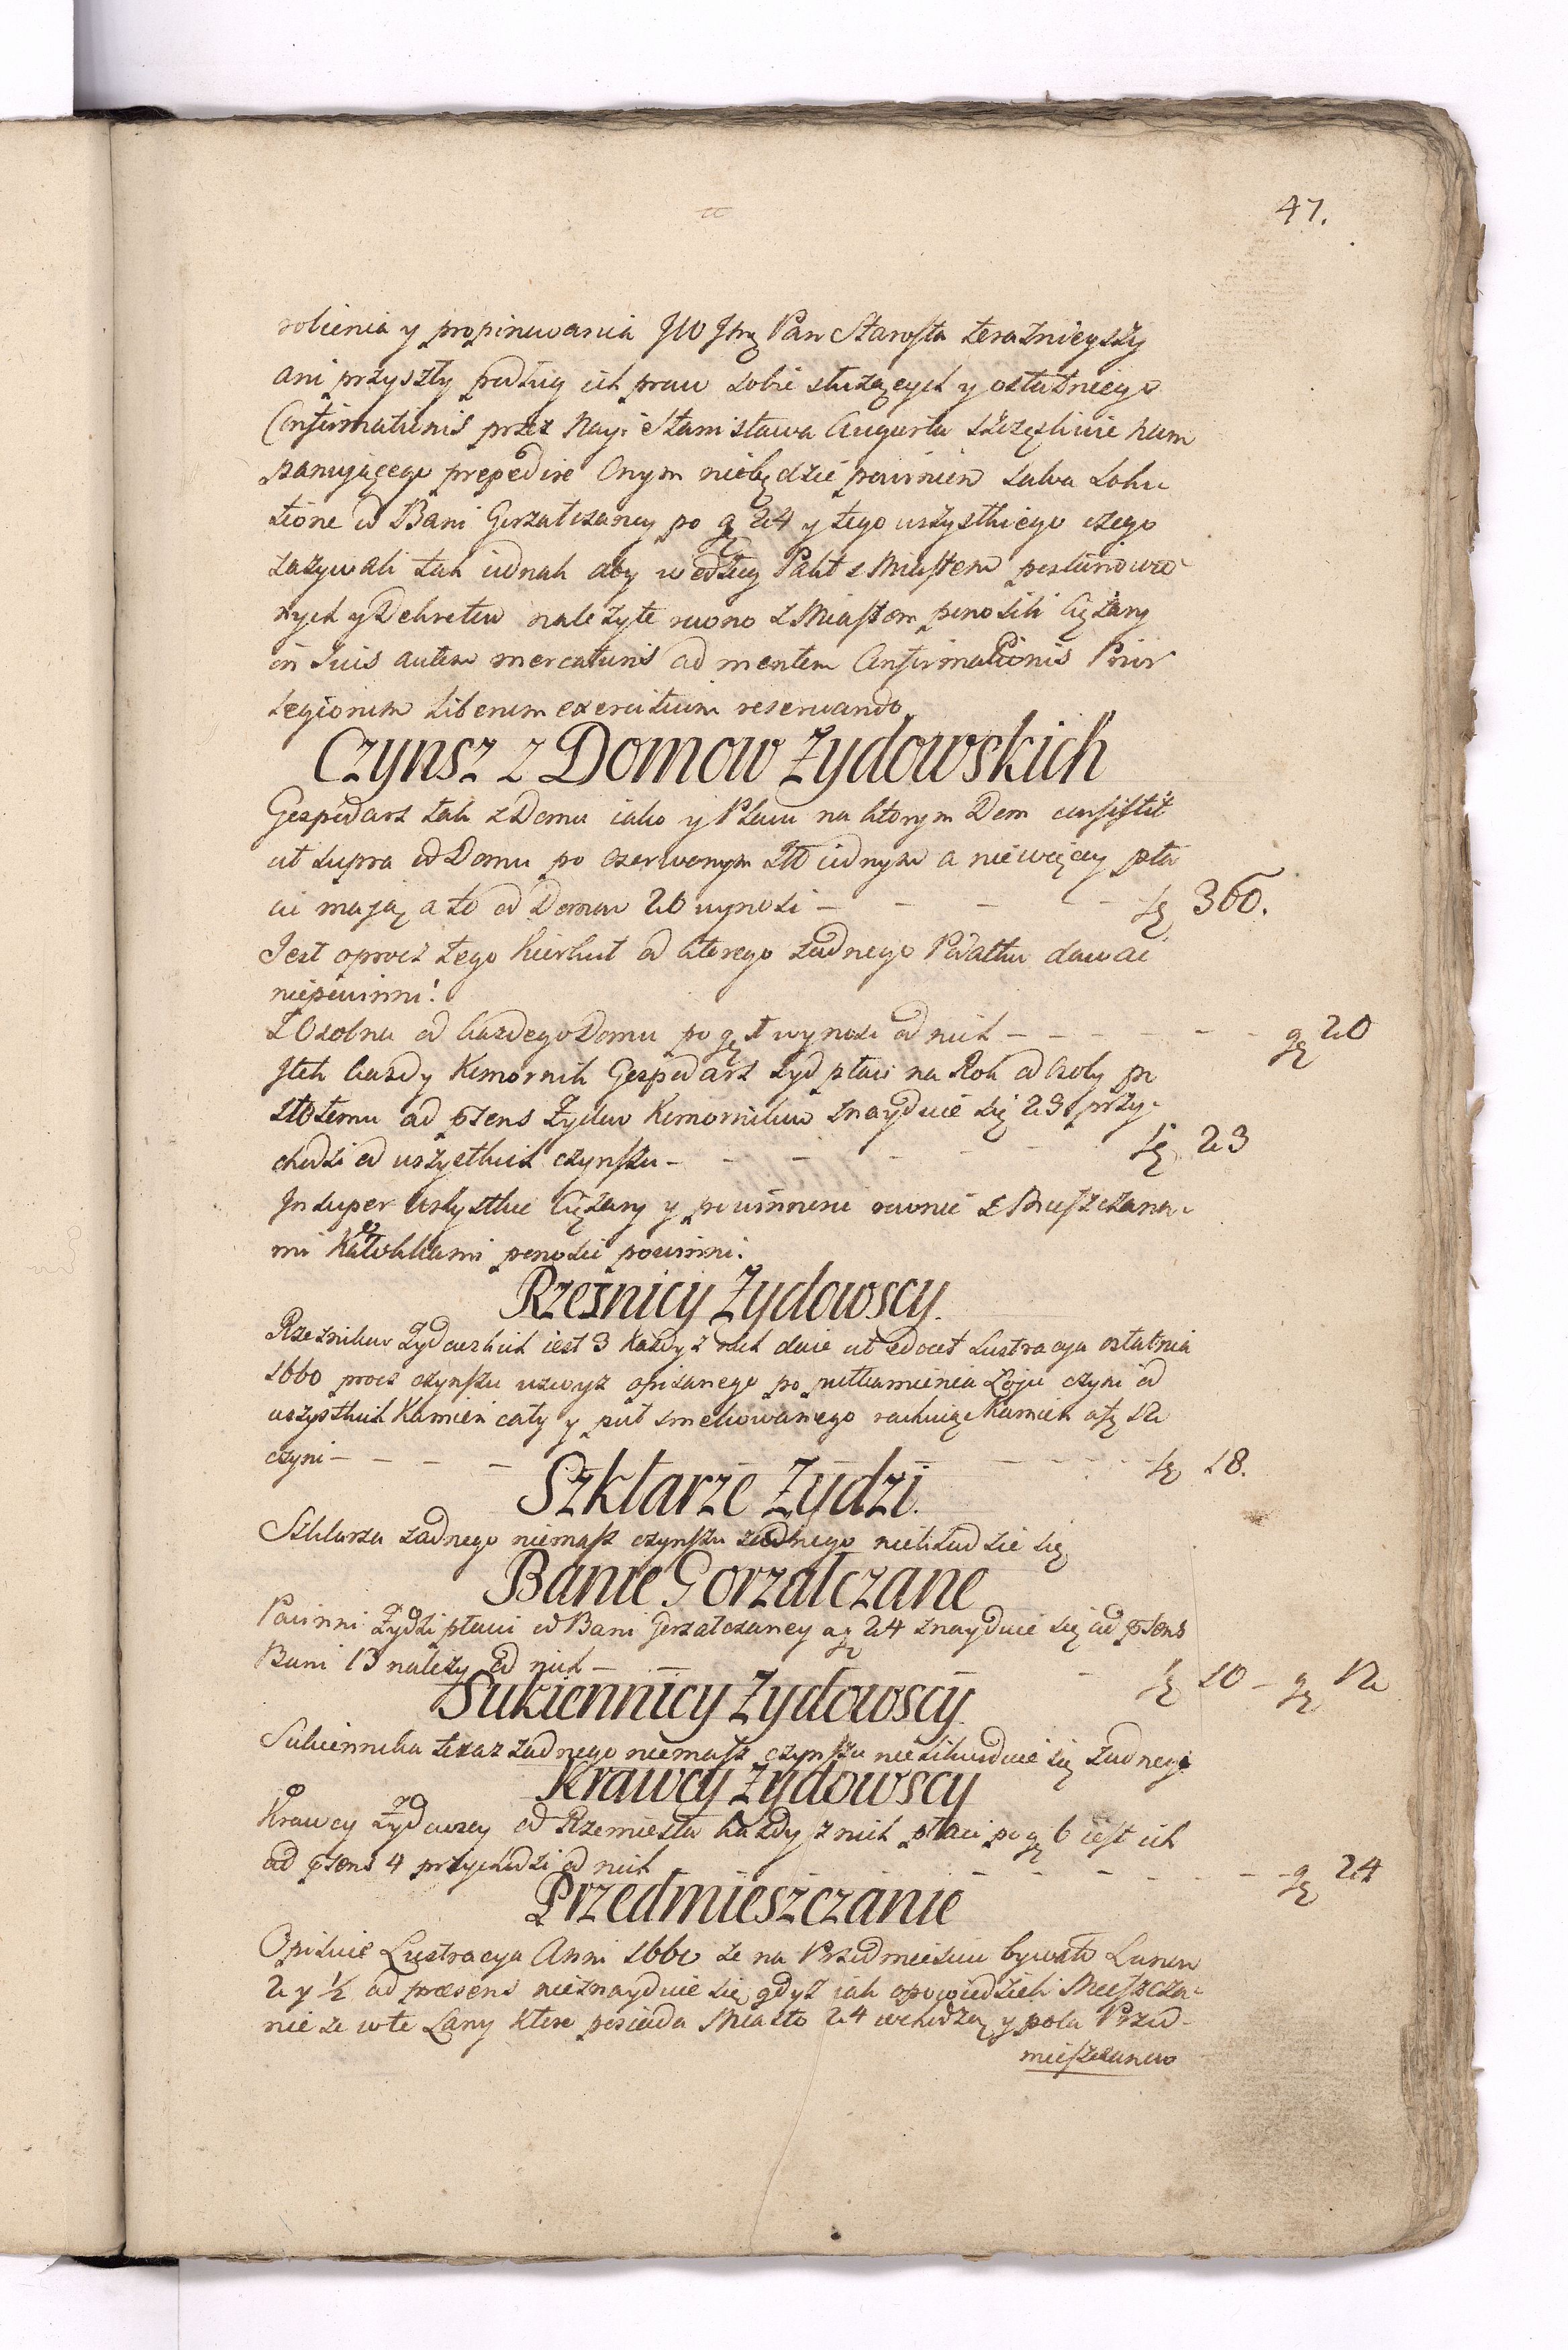 47.
robienia y propinowania JW Jmć Pan Starosta teraznieyszy
ani przyszły podług ich praw sobie służących y ostatniego
Confirmationis przez Nayi Stanisława Augusta szczęśliwie nam
panującego prepedire Onym niebędzie powinien salva solu
tione od Bani Gorzałczaney po g 24 y tego wszystkiego czego
zażywali tak iednak aby według Pakt z Miastem postanowio
nych y Dekretu należyte rowno z Miastem ponosili Ciężary
in Suis autem mercaturis ad mentem Confirmationis Privi
legiorum Liberum exercitium reservando.
Czynsz z Domow Żydowskich
Gospodarz tak z Domu iako y Placu na ktorym Dom consistit
ut supra od Domu po Czerwonym Zło iednym a niewięcey pła
cić mają a to od Domow 20 wynosi – – – – – zł 360.
Jest oprocz tego Kierkut od ktorego żadnego Podatku dawać
niepowinni.
Z Osobna od każdego Domu po gr 1 wynosi od nich – – – – – – – gr 20
Item każdy Komornik Gospodarz Żyd płaci na Rok od Osoby po
złotemu ad psens Żydow Komornikow znayduie się 23 przy-
chodzi od wszystkich czynszu – – – – – – zł 23
Insuper wszystkie Ciężary y powinnosci rownie z Mieszczana-
mi Katolikami ponosić powinni.
Rzeźnicy Żydowscy.
Rzeznikow Żydowskich iest 3 Każdy z nich daie ut edocet Lustracya ostatnia
1660 procz czynszu uzwyz opisanego po pułkamienia Łoju czyni od
wszystkich Kamień cały y puł smelcowanego rachuiąc Kamień a zł 12
czyni – – – – – – – zł 18.
Szklarze Żydzi.
Szklarza żadnego niemasz czynszu żadnego nielikuiduie się
Banie Gorzałczane
Powinni Żydzi płacić od Bani Gorzałczaney a gr 24 znayduie się ad psens
Bani 13 należy od nich – – – zł 10 – gr 12
Sukiennicy Żydowscy.
Sukiennika teraz żadnego niemasz czynszu nielikwiduie się żadnego
Krawcy Żydowscy
Krawcy Żydowscy od Rzemiesła każdy z nich płaci po gr 6 iest ich
ad psens 4 przychodzi od nich – – – – – gr 24
Przedmieszczanie
Opisuie Lustracya Anni 1660 że na Przedmiesciu bywało Łanow
2 y ½ ad præsens nieznayduie się gdyż iak opowiedzieli Mieszcza-
nie że w te Łany ktore posiada Miasto 24 wchodzą y pola Przed-
mieszczanow